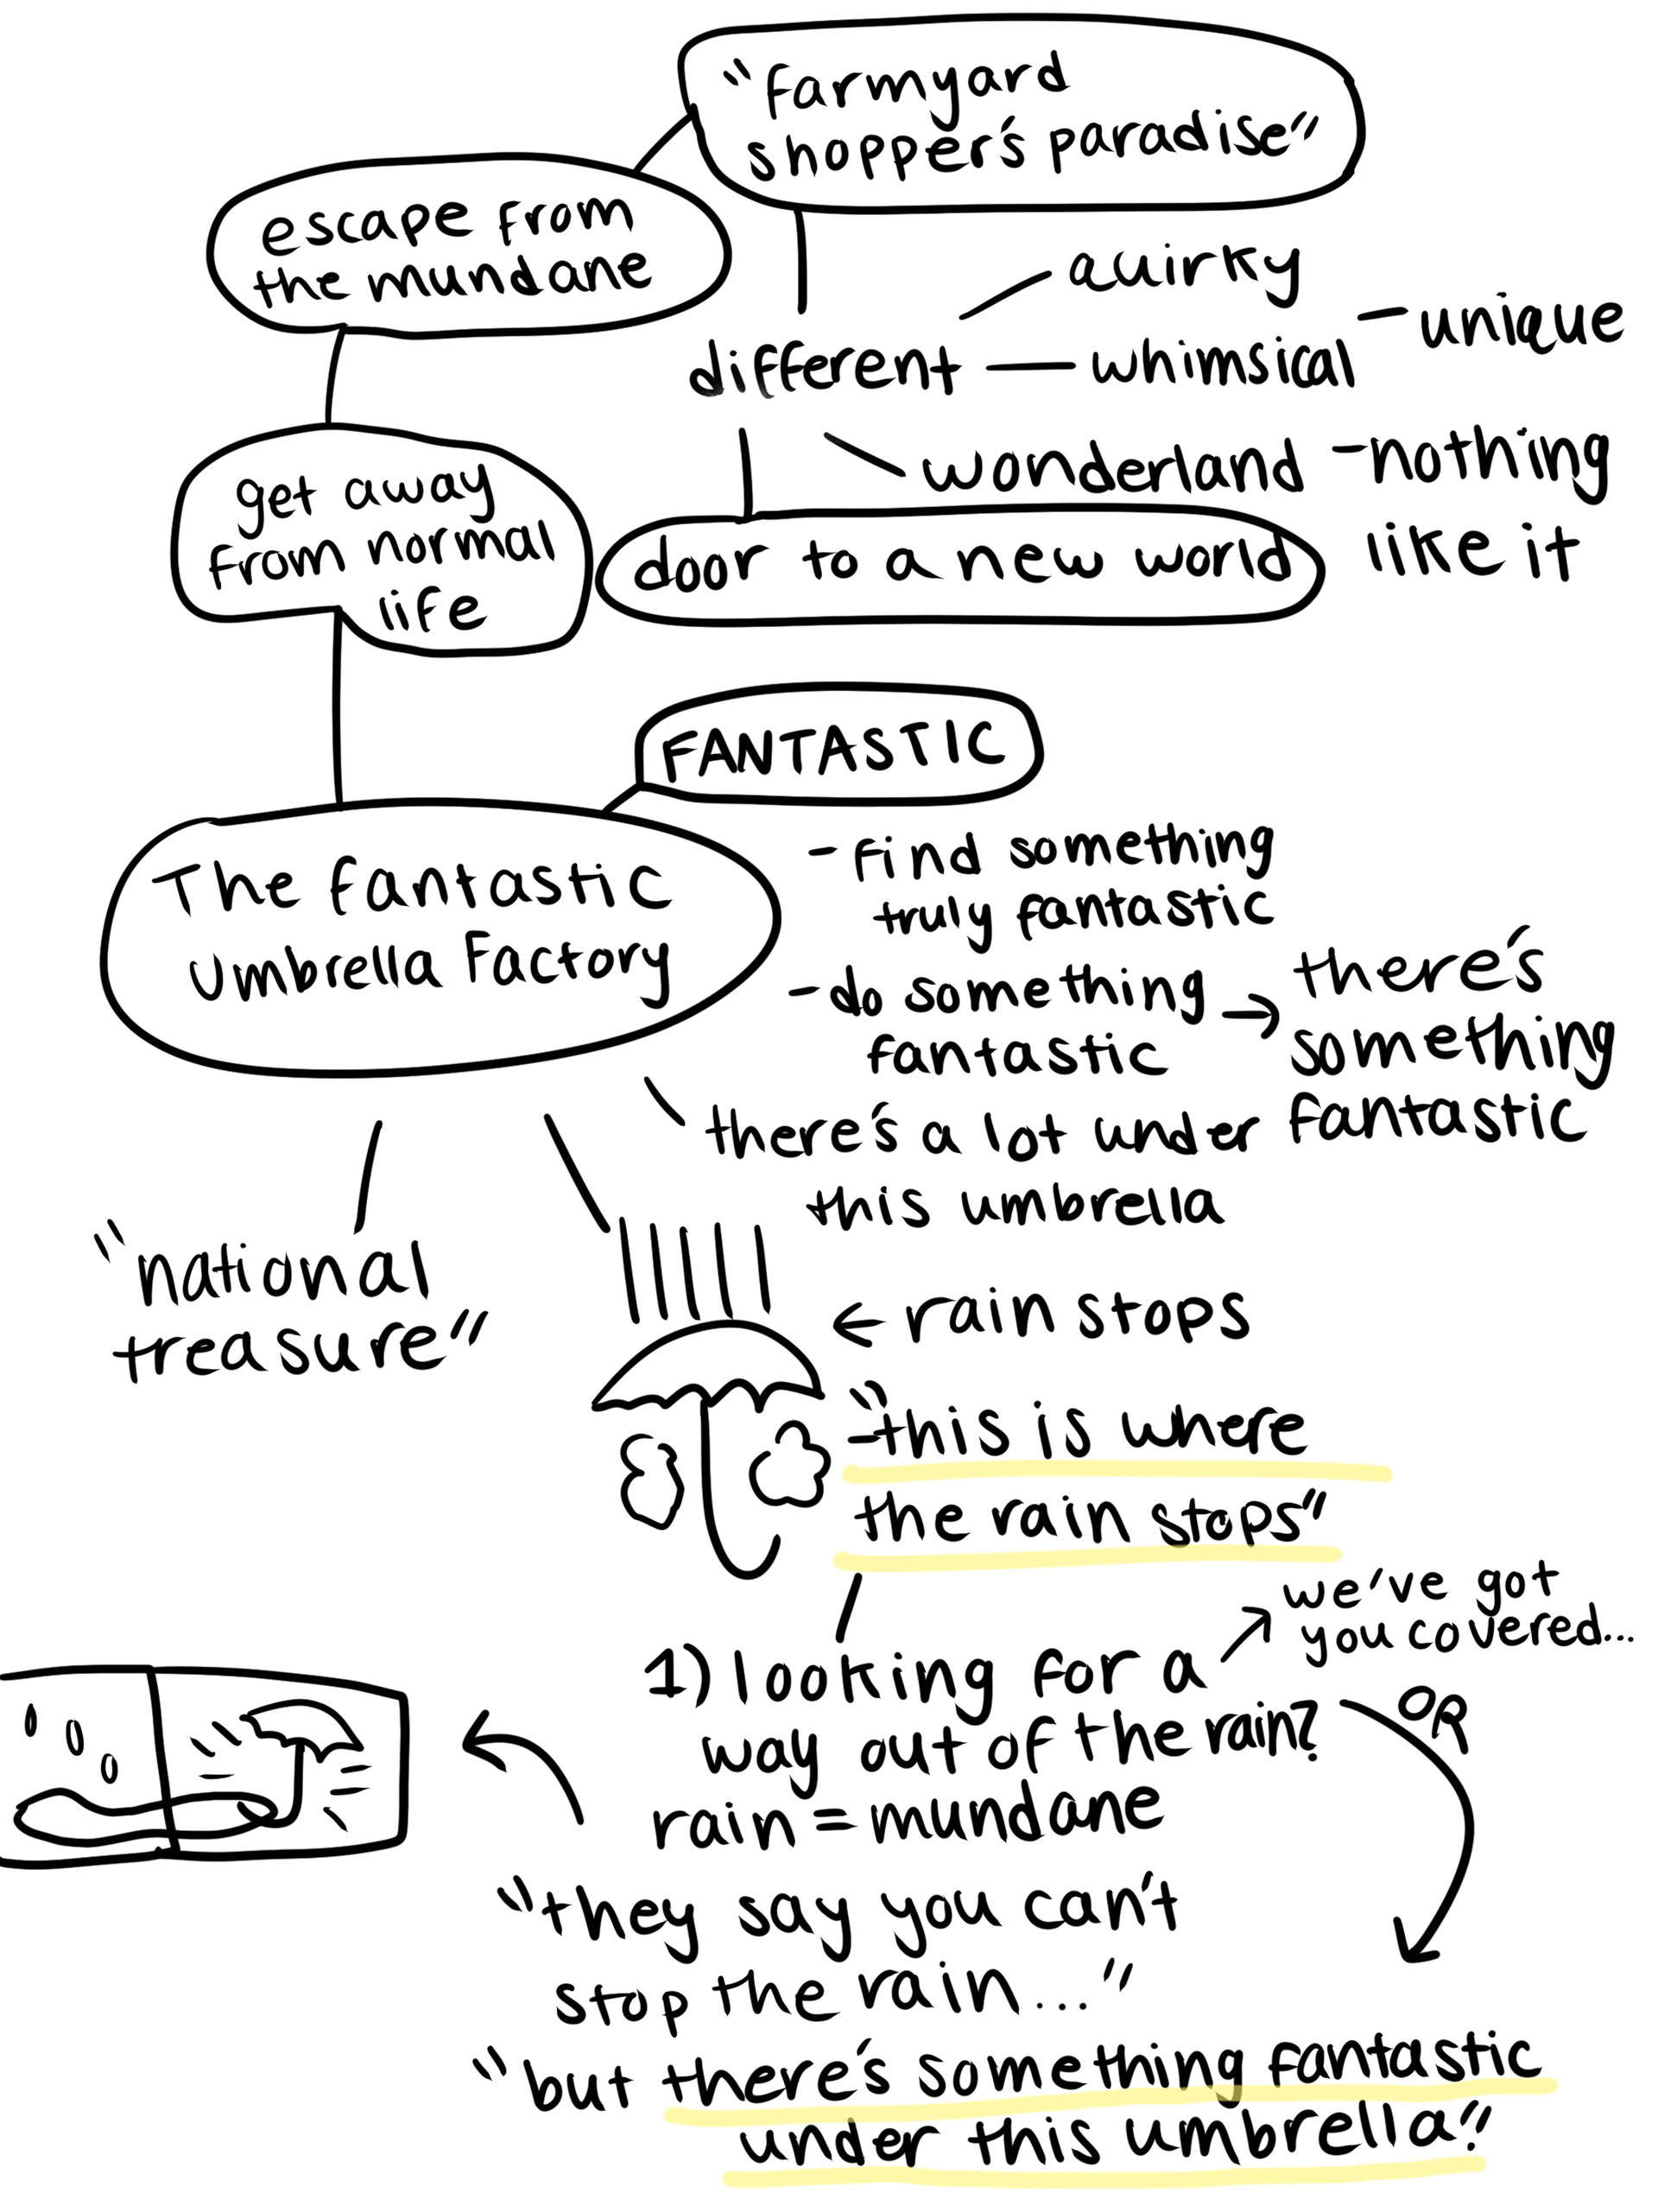 "farmyard
shopper's paradise"
escape from
the mundane
quirky
different — whimsical
- unique
wonderland
- nothing
like it
get away
from normal
life
door to a new world
FANTASTIC
The fantastic
Umbrella Factory
- find something
truly fantastic
- do something
fantastic
→ there's
something
fantastic
there's a lot under
this umbrella
"national
treasure"
← rain stops
"this is where
the rain stops"
we've got
you covered...
1) looking for a
way out of the rain?
OR
rain = mundane
"they say you can't
stop the rain..."
"but there's something fantastic
under this umbrella"